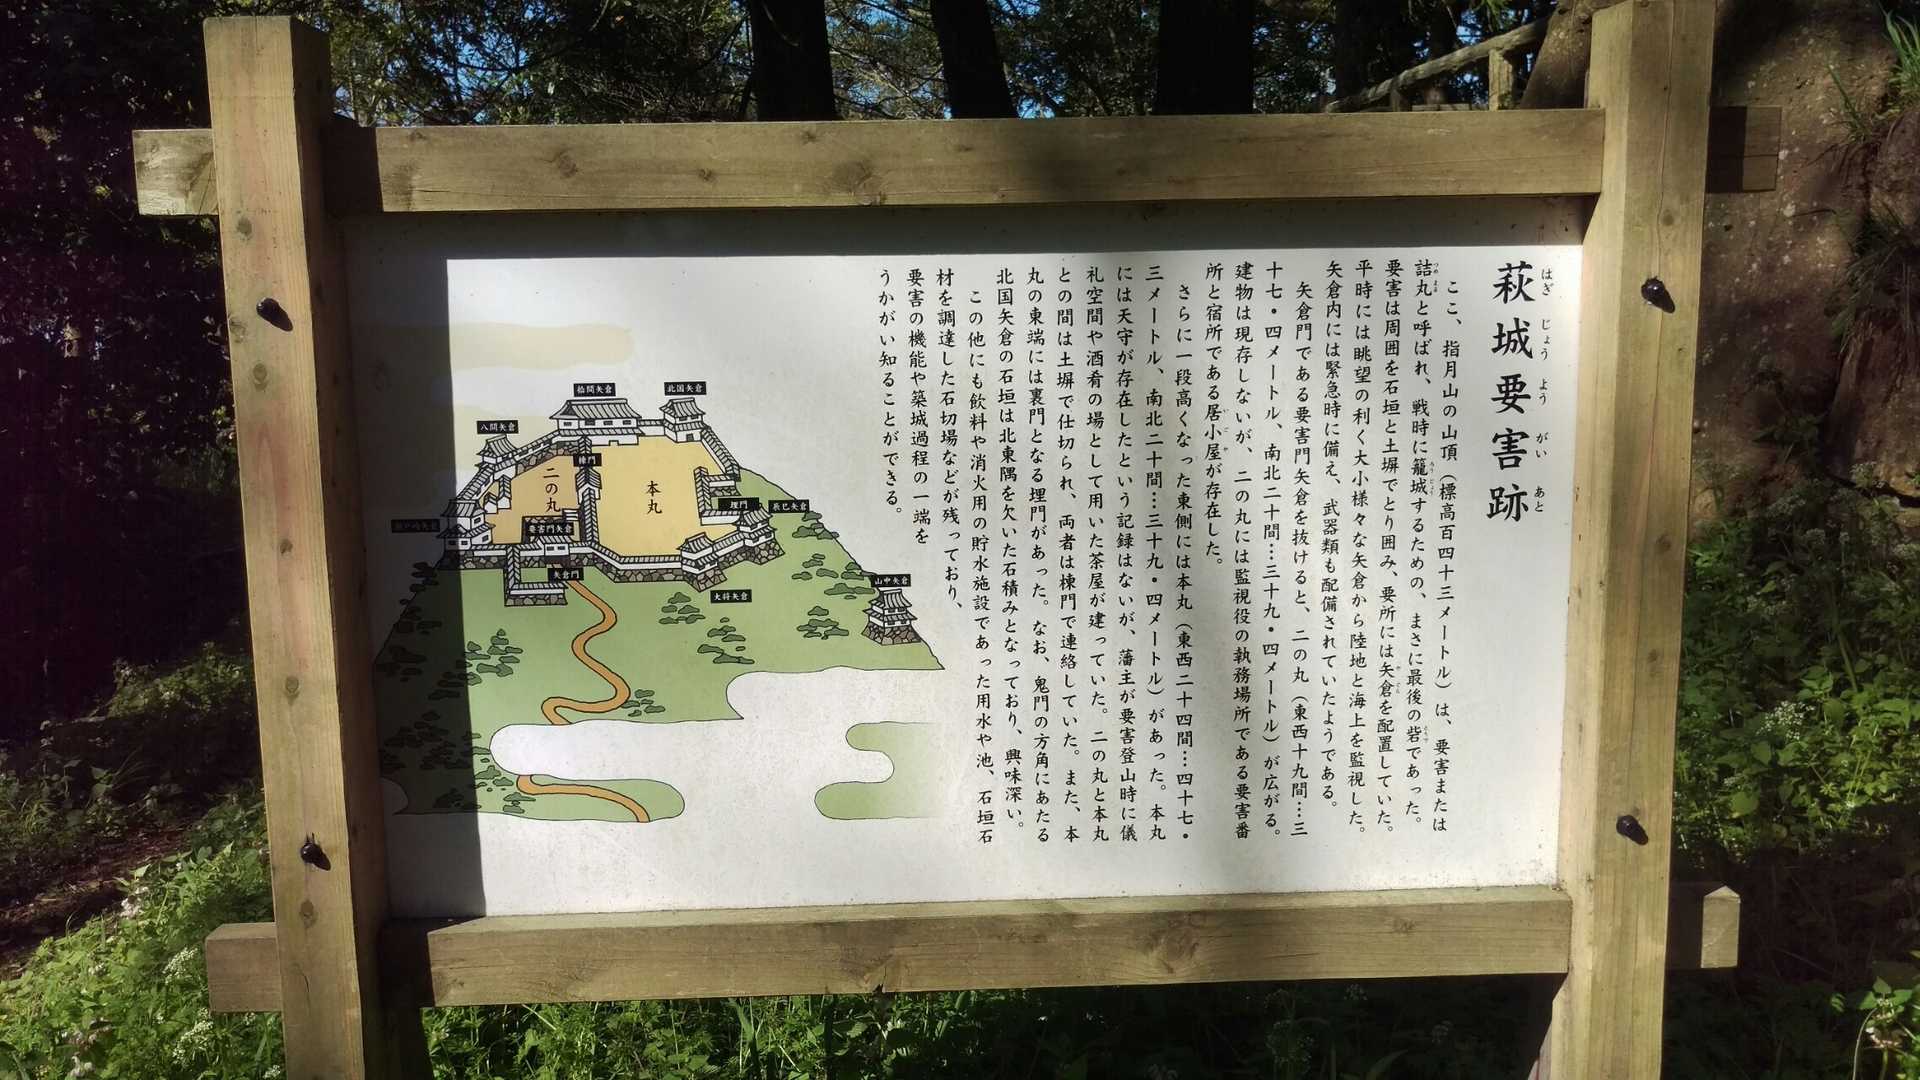 萩城要害跡
はぎ じょう よう がい あと
ここ、指月山の山頂（標高百四十三メートル）は、要害または
詰丸と呼ばれ、戦時に籠城するための、まさに最後の砦であった。
要害は周囲を石垣と土塀でとり囲み、要所には矢倉を配置していた。
平時には眺望の利く大小様々な矢倉から陸地と海上を監視した。
矢倉内には緊急時に備え、武器類も配備されていたようである。
矢倉門である要害門矢倉を抜けると、二の丸（東西十九間…三
十七・四メートル、南北二十間…三十九・四メートル）が広がる。
建物は現存しないが、二の丸には監視役の執務場所である要害番
所と宿所である居小屋が存在した。
さらに一段高くなった東側には本丸（東西二十四間…四十七・
三メートル、南北二十間…三十九・四メートル）があった。本丸
には天守が存在したという記録はないが、藩主が要害登山時に儀
礼空間や酒肴の場として用いた茶屋が建っていた。二の丸と本丸
との間は土塀で仕切られ、両者は棟門で連絡していた。また、本
丸の東端には裏門となる埋門があった。なお、鬼門の方角にあたる
北国矢倉の石垣は北東隅を欠いた石積みとなっており、興味深い。
この他にも飲料や消火用の貯水施設であった用水や池、石垣石
材を調達した石切場などが残っており、
要害の機能や築城過程の一端を
うかがい知ることができる。
北国矢倉
八間矢倉
二の丸
本丸
埋門
辰巳矢倉
要害門矢倉
矢倉門
山中矢倉
大将矢倉